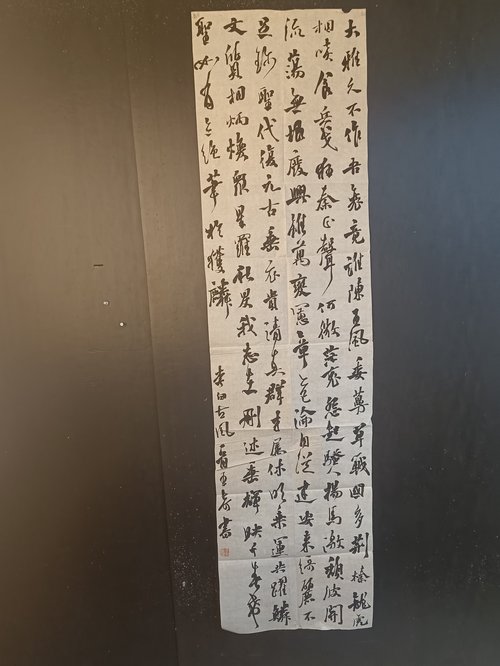 大雅久不作吾衰竟誰陳王風委蔓草戰國多荊榛龍虎
相啖食兵戈狂秦正聲何微茫哀怨起騷人揚馬激頹波開
流蕩無垠廢興雖萬變憲章亦已淪自從建安來綺麗不
足珍聖代復元古垂衣貴清真群才屬休明乘運共躍鱗
文質相炳煥眾星羅秋旻我志在刪述垂輝映千春希
聖如有立絕筆於獲麟
李白古風書